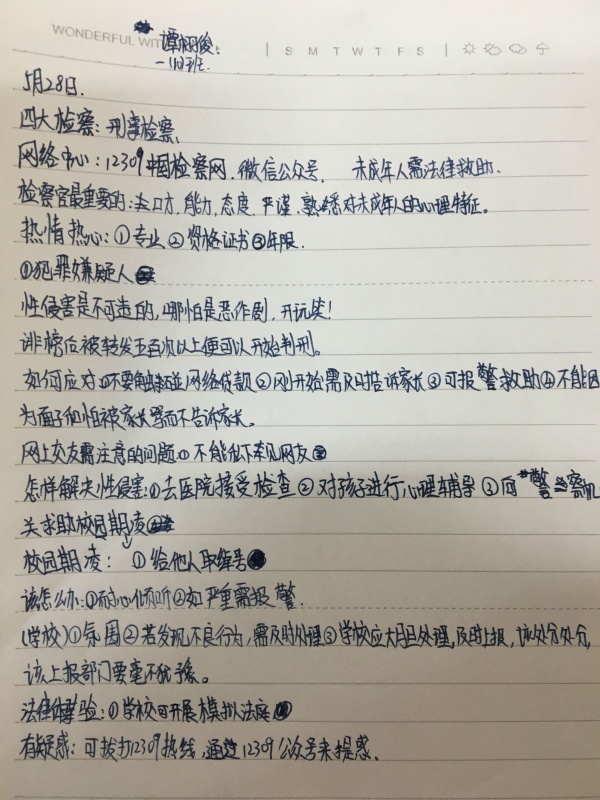 WONDERFUL WIT
S M T W T F S
谭栩俊.
一(4)班.
5月28日.
四大检察：刑事检察、
网络中心：12309中国检察网，微信公众号， 未成年人需法律救助.
检察官最重要的：去口才，能力，态度，严谨、熟悉对未成年人的心理特征。
热情热心：①专业②资格证书③年限.
①犯罪嫌疑人
性侵害是不可违的，哪怕是恶作剧，开玩笑！
诽榜后被转发五百次以上便可以开始判刑。
如何应对①不要触碰网络贷款②刚开始需及时告诉家长③可报警救助④不能因
为面子和怕被家长骂而不告诉家长。
网上交友需注意的问题①不能私下来见网友
怎样解决性侵害：①去医院接受检查②对孩子进行心理辅导③向警察机
关求助校园期凌
校园期凌：①给他人取绰号
该怎么办：①耐心倾听②如严重需报警.
(学校)①氛围②若发现不良行为，需及时处理③学校应大胆处理，及时上报，该处分处分，
该上报部门要毫不犹豫。
法律体验：①学校可开展模拟法庭
有疑惑：可拨打12309热线，通过12309公众号来提惑.